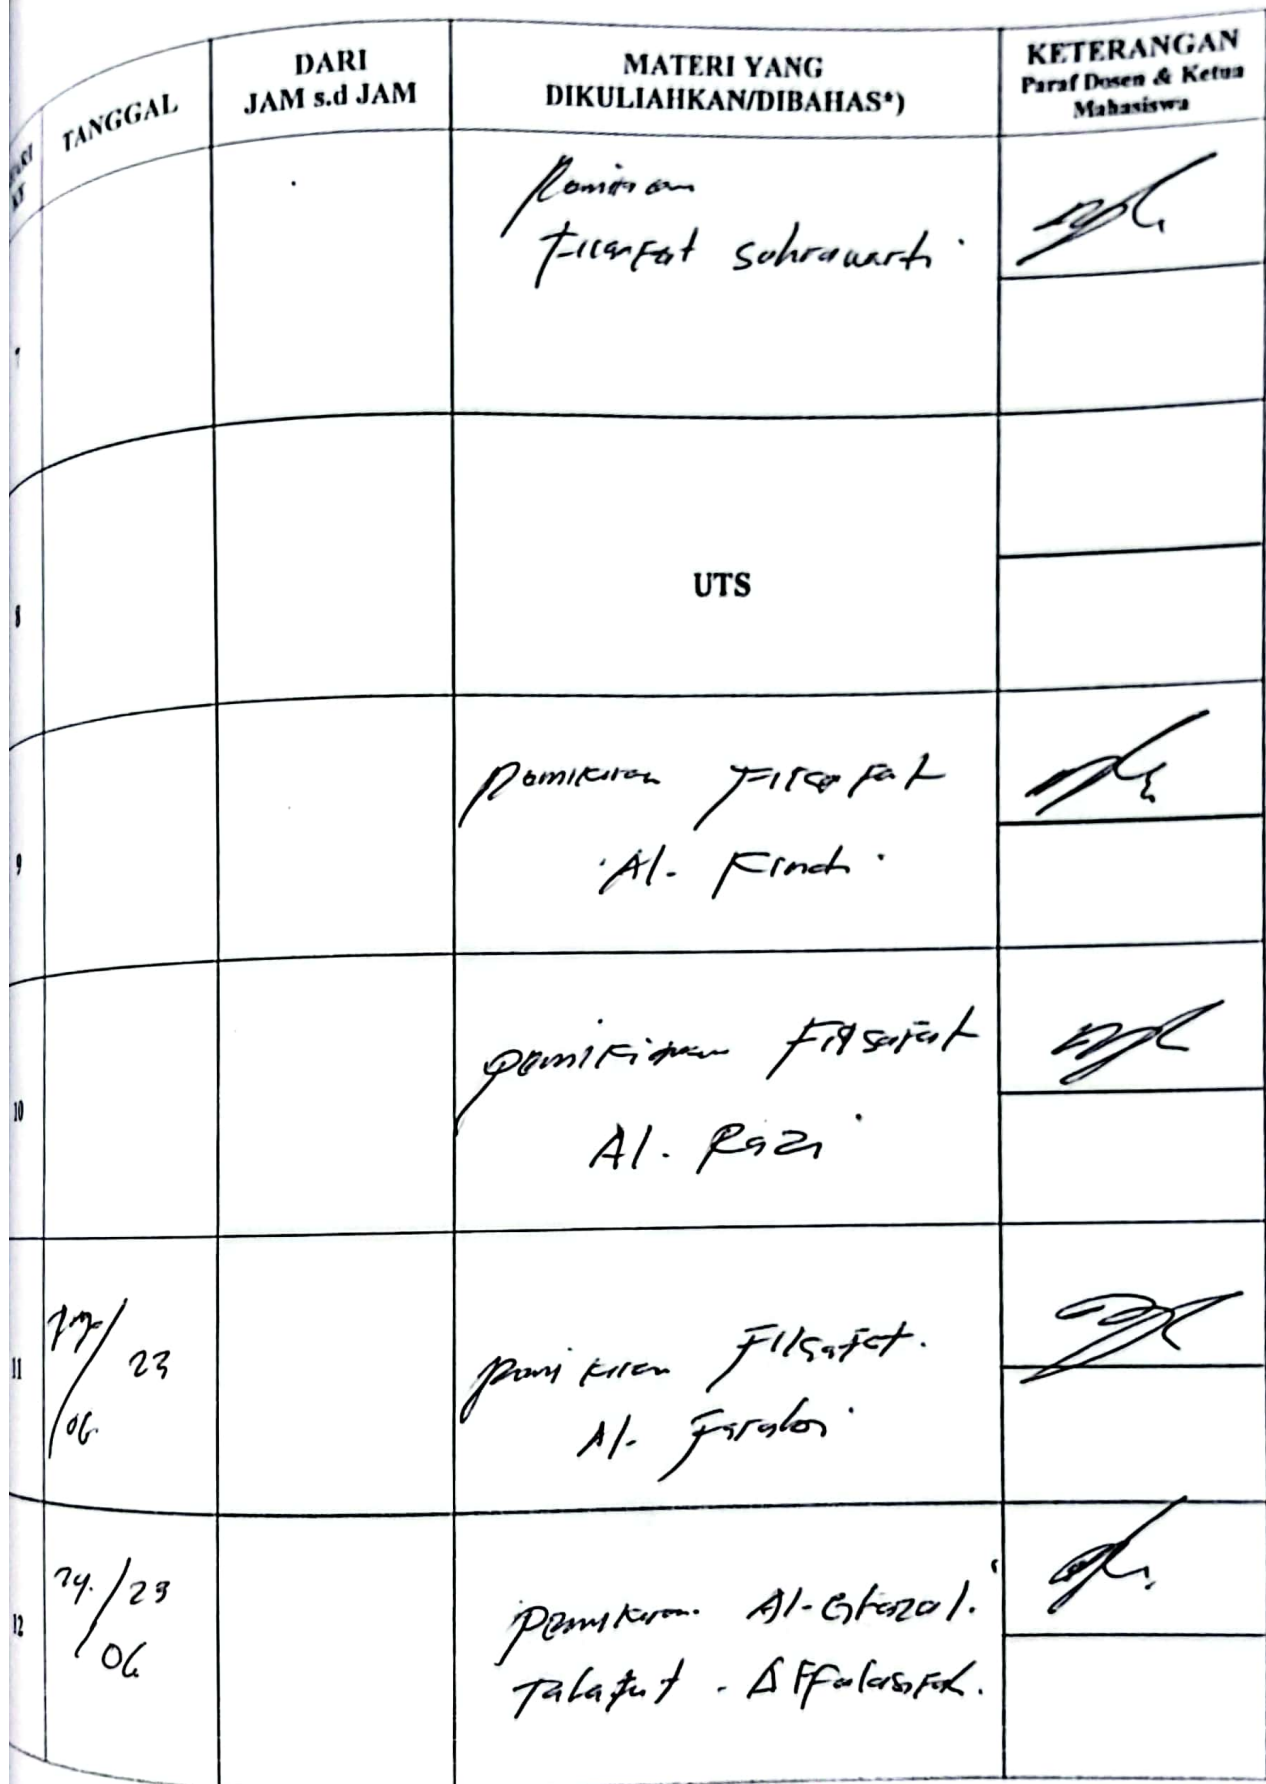 TANGGAL
DARI
JAM s.d JAM
MATERI YANG
DIKULIAHKAN/DIBAHAS*)
KETERANGAN
Paraf Dosen & Ketua
Mahasiswa
7
Pemikiran
Filsafat Sohrawardi
8
UTS
9
Pemikiran Filsafat
Al-Kindi
10
Pemikiran Filsafat
Al-Razi
11
/23
/06
Pemikiran Filsafat.
Al-Farabi
12
24./23
/06
Pemikiran Al-Ghazali
Tahafut - Al Falasifah.